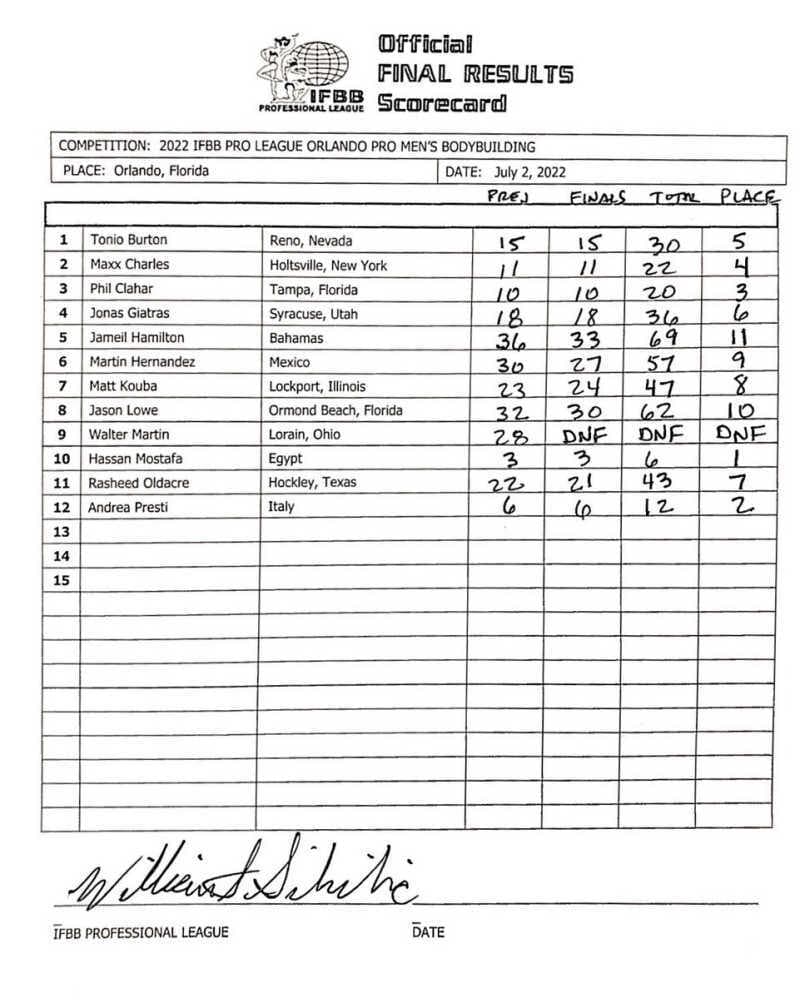 Official
FINAL RESULTS
Scorecard
IFBB
PROFESSIONAL LEAGUE
COMPETITION: 2022 IFBB PRO LEAGUE ORLANDO PRO MEN'S BODYBUILDING
PLACE: Orlando, Florida DATE: July 2, 2022
PREJ FINALS TOTAL PLACE
1 Tonio Burton Reno, Nevada 15 15 30 5
2 Maxx Charles Holtsville, New York 11 11 22 4
3 Phil Clahar Tampa, Florida 10 10 20 3
4 Jonas Giatras Syracuse, Utah 18 18 36 6
5 Jameil Hamilton Bahamas 36 33 69 11
6 Martin Hernandez Mexico 30 27 57 9
7 Matt Kouba Lockport, Illinois 23 24 47 8
8 Jason Lowe Ormond Beach, Florida 32 30 62 10
9 Walter Martin Lorain, Ohio 28 DNF DNF DNF
10 Hassan Mostafa Egypt 3 3 6 1
11 Rasheed Oldacre Hockley, Texas 22 21 43 7
12 Andrea Presti Italy 6 6 12 2
13
14
15
IFBB PROFESSIONAL LEAGUE DATE